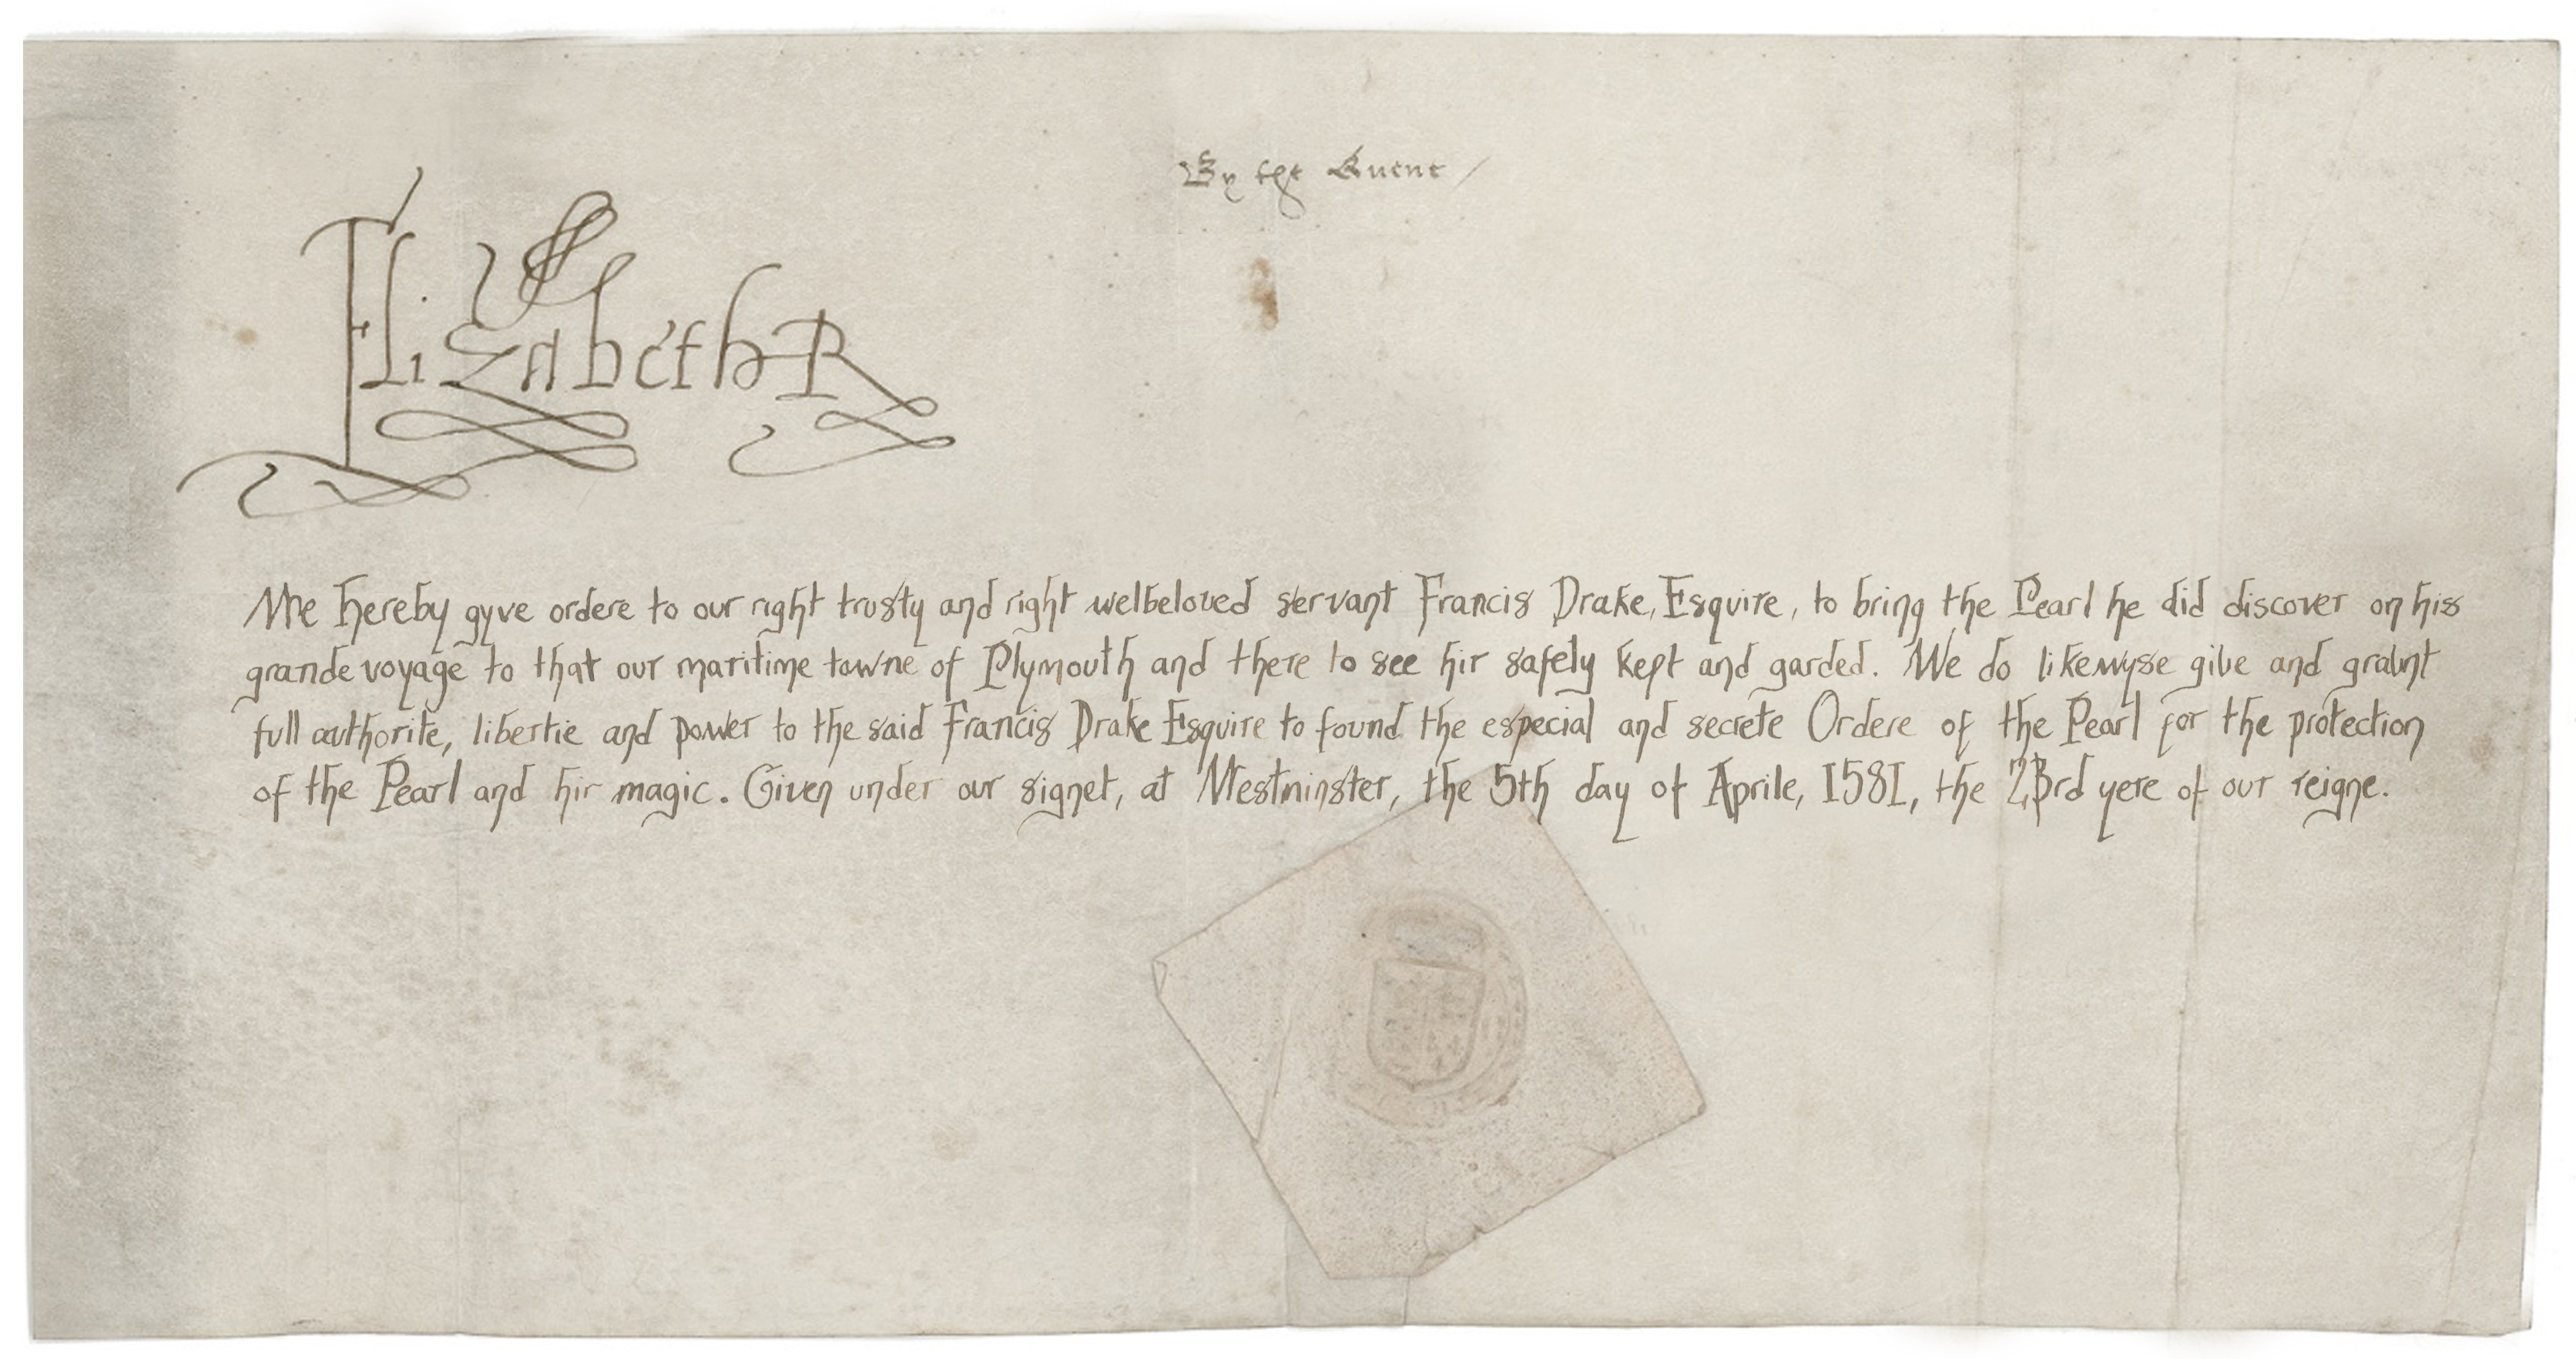 By the Quene
Elizabeth R
We hereby gyve ordere to our right trusty and right welbeloved servant Francis Drake, Esquire, to bring the Pearl he did discover on his
grande voyage to that our maritime towne of Plymouth and there to see hir safely kept and garded. We do likewyse give and graunt
full authorite, libertie and power to the said Francis Drake Esquire to found the especial and secrete Ordere of the Pearl for the protection
of the Pearl and hir magic. Given under our signet, at Westminster, the 5th day of Aprile, 1581, the 23rd yere of our reigne.